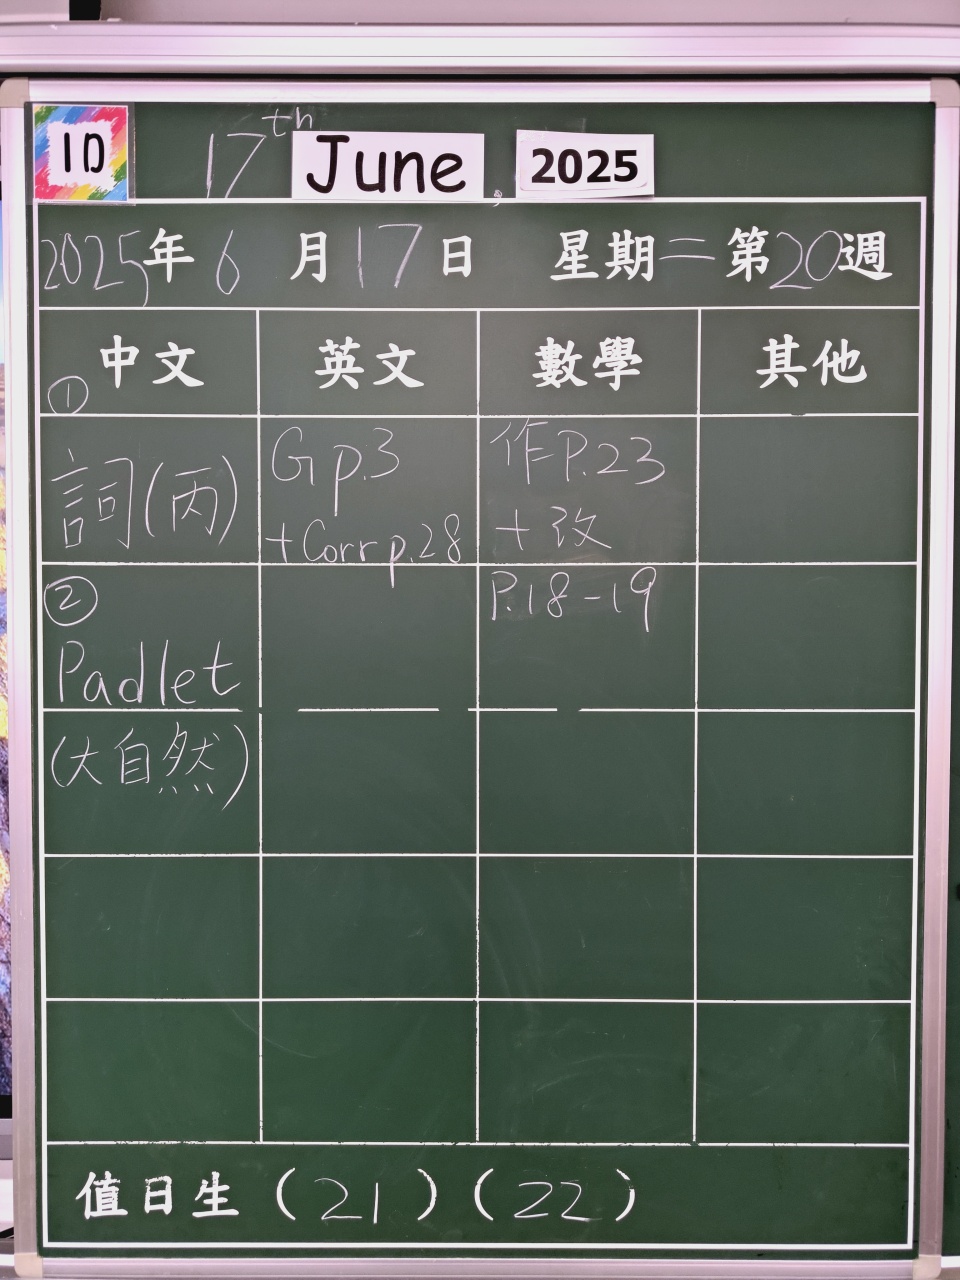 1D
17th June, 2025
2025年6月17日 星期二 第20週
中文 英文 數學 其他
①
詞(丙)
②
Padlet
(大自然)
G p.3
+Corr p.28
作P.23
+改
P.18-19
值日生 (21) (22)